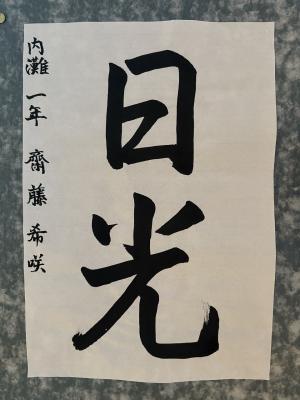 日光
内灘 一年 齋藤希咲